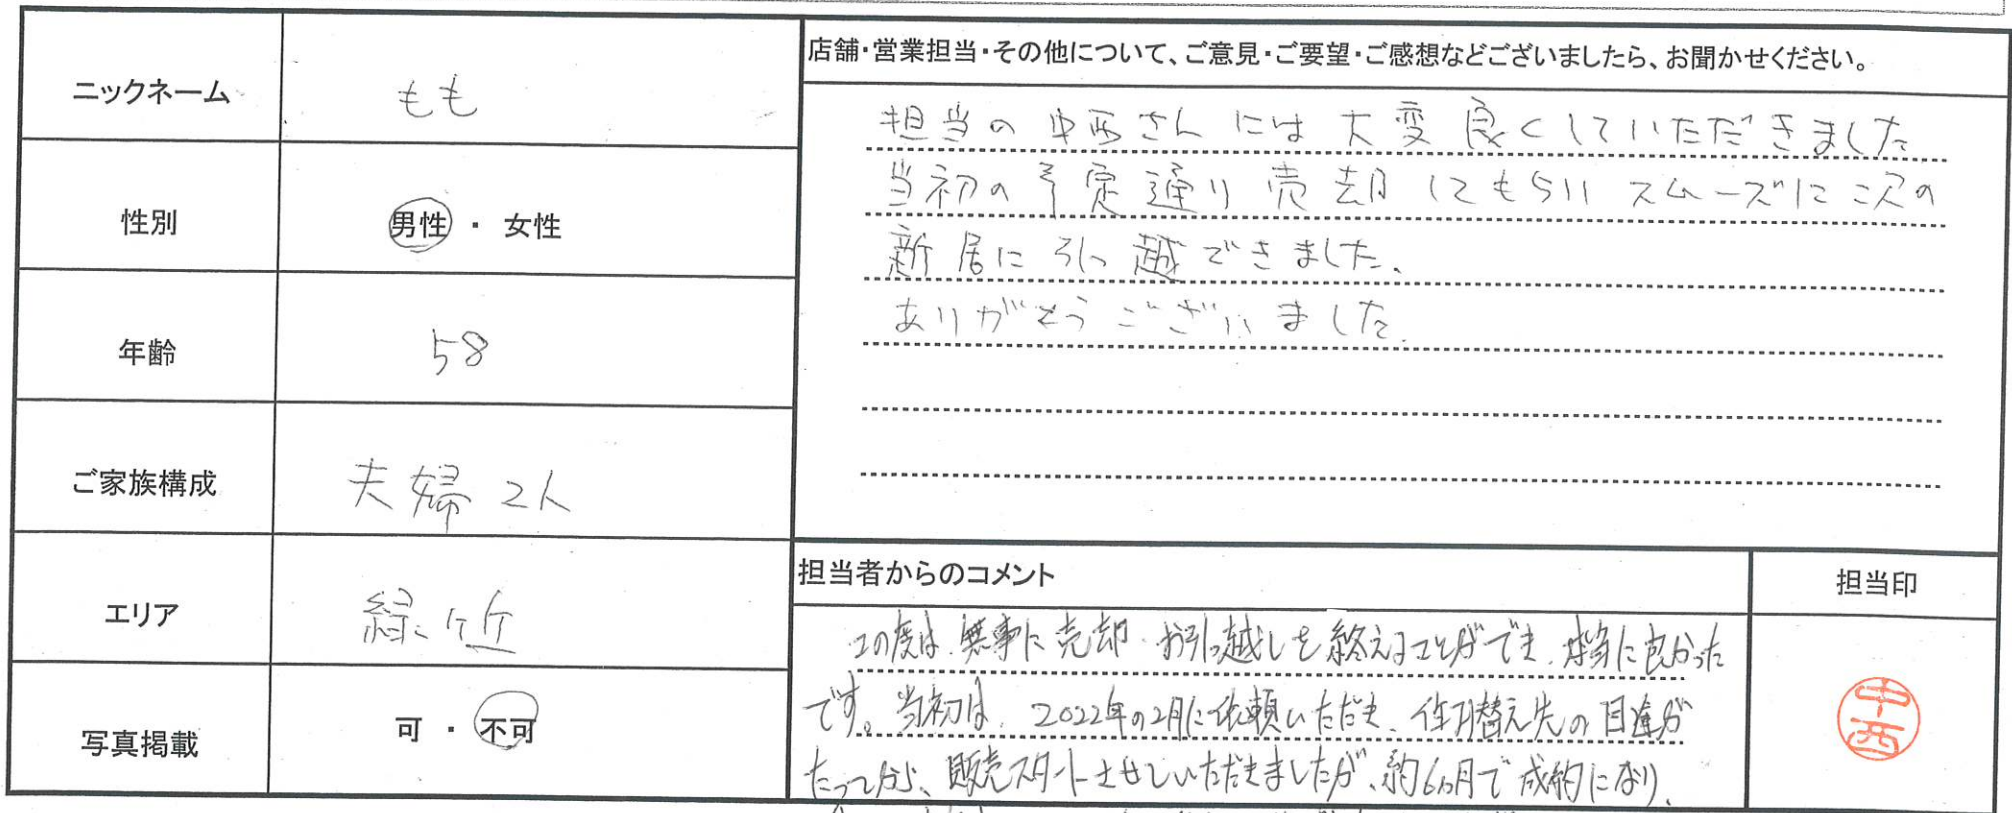 ニックネーム
もも
性別
男性・女性
年齢
58
ご家族構成
夫婦 2人
エリア
緑ヶ丘
写真掲載
可・不可
店舗・営業担当・その他について、ご意見・ご要望・ご感想などございましたら、お聞かせください。
担当の中西さんには大変良くしていただきました
当初の予定通り売却してもらい スムーズに次の
新居に引っ越できました。
ありがとうございました。
担当者からのコメント
この度は、無事に売却・お引っ越しを終えることができ、本当に良かった
です。当初は、2022年の2月に依頼いただき、住み替え先の目途が
たってから、販売スタートさせていただきましたが、約6ヵ月で成約になり、
担当印
中西